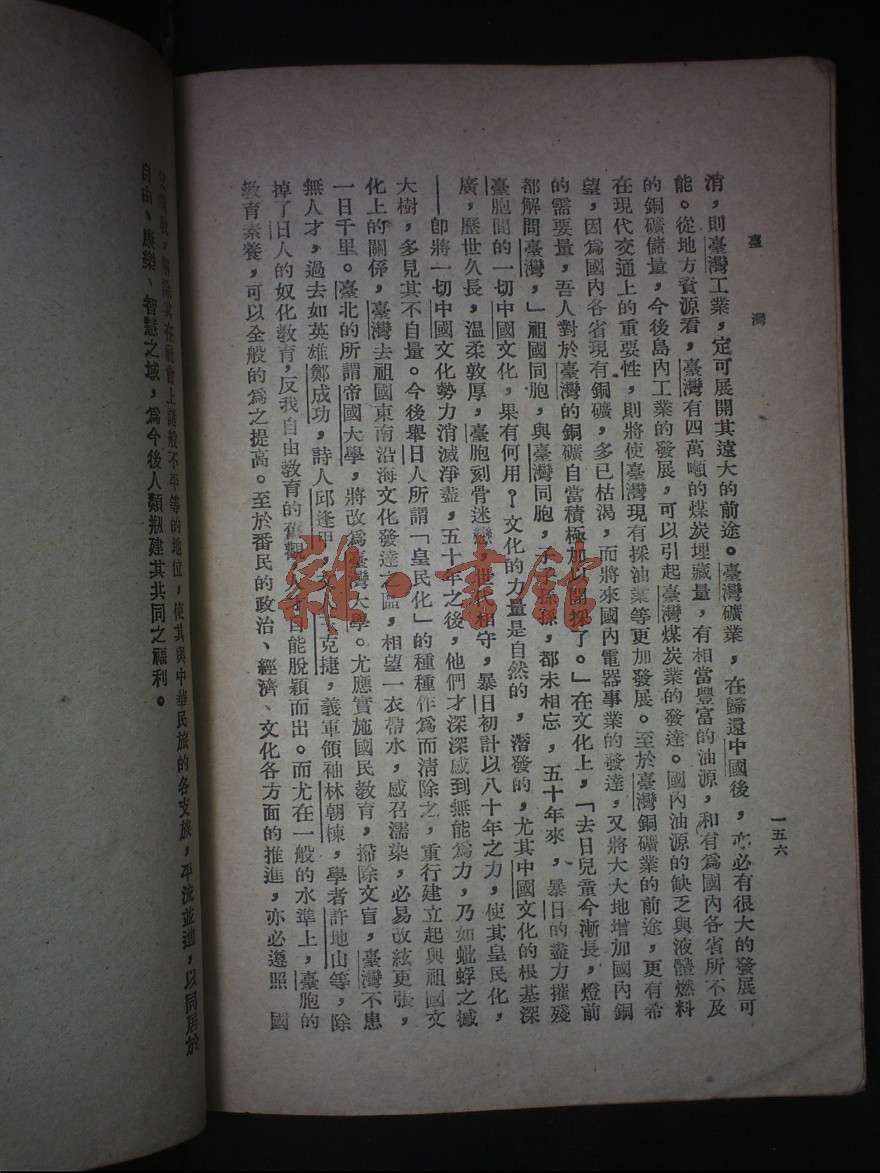 臺灣
一五六
消，則臺灣工業，定可展開其遠大的前途。臺灣礦業，在歸還中國後，亦必有很大的發展可
能。從地方資源看，臺灣有四萬噸的煤炭埋藏量，有相當豐富的油源，和有爲國內各省所不及
的銅礦儲量，今後島內工業的發展，可以引起臺灣煤炭業的發達。國內油源的缺乏與液體燃料
在現代交通上的重要性，則將使臺灣現有採油業等更加發展。至於臺灣銅礦業的前途，更有希
望，因爲國內各省現有銅礦，多已枯渴，而將來國內電器事業的發達，又將大大地增加國內銅
的需要量，吾人對於臺灣的銅礦自當積極加以開採了。」在文化上，「去日兒童今漸長，燈前
都解問臺灣，」祖國同胞，與臺灣同胞，子孫孫，都未相忘，五十年來，暴日的盡力摧殘
臺胞間的一切中國文化，果有何用？文化的力量是自然的，潛發的，尤其中國文化的根基深
廣，歷世久長，溫柔敦厚，臺胞刻骨迷戀，世代相守，暴日初計以八十年之力，使其皇民化，
——卽將一切中國文化勢力消滅淨盡，五十年之後，他們才深深感到無能爲力，乃如蚍蜉之撼
大樹，多見其不自量。今後舉日人所謂「皇民化」的種種作爲而清除之，重行建立起與祖國文
化上的關係，臺灣去祖國東南沿海文化發達之區，相望一衣帶水，感召濡染，必易改絃更張，
一日千里。臺北的所謂帝國大學，將改爲臺灣大學。尤應實施國民教育，掃除文盲，臺灣不患
無人才，過去如英雄鄭成功，詩人邱逢甲，文人王克捷，義軍領袖林朝棟，學者許地山等，除
掉了日人的奴化教育，反我自由教育的舊觀，人才自能脫穎而出。而尤在一般的水準上，臺胞的
教育素養，可以全般的爲之提高。至於番民的政治、經濟、文化各方面的推進，亦必遵照　國
父遺教，解除其在社會上諸般不平等的地位，使其與中華民族的各支族，平流並進，以同居於
自由、康樂、智慧之域，爲今後人類剏建其共同之福利。
雜·書館